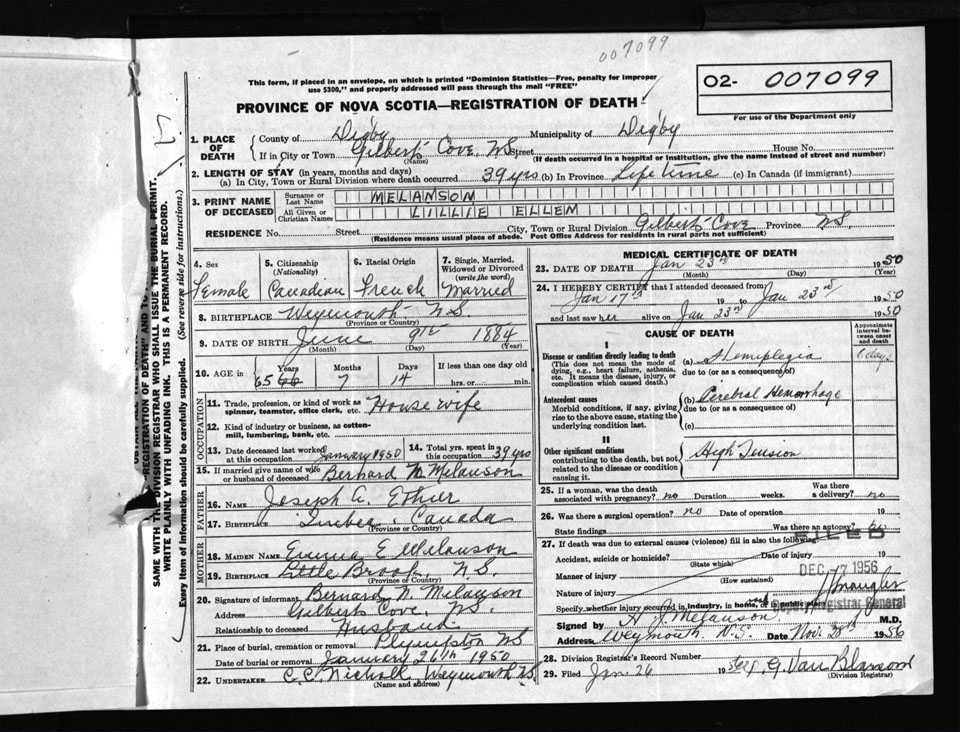 007099
This form, if placed in an envelope, on which is printed "Dominion Statistics—Free, penalty for improper
use $300," and properly addressed will pass through the mail "FREE"
PROVINCE OF NOVA SCOTIA—REGISTRATION OF DEATH
O2- 007099
For use of the Department only
1. PLACE OF DEATH
County of Digby Municipality of Digby
If in City or Town Gilberts Cove, N.S. Street House No.
(Name) (If death occurred in a hospital or institution, give the name instead of street and number)
2. LENGTH OF STAY (in years, months and days)
(a) In City, Town or Rural Division where death occurred 39 yrs (b) In Province Life time (c) In Canada (if immigrant)
3. PRINT NAME OF DECEASED
Surname or Last Name MELANSON
All Given or Christian Names LILLIE ELLEN
RESIDENCE No. Street City, Town or Rural Division Gilberts Cove Province N.S.
(Residence means usual place of abode. Post Office Address for residents in rural parts not sufficient)
4. Sex
Female
5. Citizenship (Nationality)
Canadian
6. Racial Origin
French
7. Single, Married, Widowed or Divorced (write the word)
Married
8. BIRTHPLACE Weymouth N.S.
(Province or Country)
9. DATE OF BIRTH June 9th 1884
(Month) (Day) (Year)
10. AGE in Years Months Days If less than one day old
65 7 14 hrs. or min.
OCCUPATION
11. Trade, profession, or kind of work as spinner, teamster, office clerk, etc. House wife
12. Kind of industry or business, as cotton-mill, lumbering, bank, etc.
13. Date deceased last worked at this occupation January 1950
14. Total yrs. spent in this occupation 39 yrs
15. If married give name of wife or husband of deceased Bernard N. Melanson
FATHER
16. NAME Joseph A. Ethier
17. BIRTHPLACE Quebec, Canada
(Province or Country)
MOTHER
18. MAIDEN NAME Emma E Melanson
19. BIRTHPLACE Little Brook, N.S.
(Province or Country)
20. Signature of informant Bernard N. Melanson
Address Gilberts Cove, N.S.
Relationship to deceased Husband
21. Place of burial, cremation or removal Plympton N.S
Date of burial or removal January 26th 1950
22. UNDERTAKER C. C. Nicholl, Weymouth N.S
(Name and address)
MEDICAL CERTIFICATE OF DEATH
23. DATE OF DEATH Jan 23rd 1950
(Month) (Day) (Year)
24. I HEREBY CERTIFY that I attended deceased from:
Jan 17th 19 to Jan 23rd 1950
and last saw her alive on Jan 23rd 1950
CAUSE OF DEATH
Approximate interval between onset and death
I
Disease or condition directly leading to death (a) Hemiplegia 6 days
(This does not mean the mode of dying, e.g., heart failure, asthenia, etc. It means the disease, injury, or complication which caused death.)
due to (or as a consequence of)
Antecedent causes (b) Cerebral Hemorrhage
Morbid conditions, if any, giving rise to the above cause, stating the underlying condition last.
due to (or as a consequence of)
(c)
II
Other significant conditions High Tension
contributing to the death, but not related to the disease or condition causing it.
25. If a woman, was the death associated with pregnancy? no Duration weeks. Was there a delivery? no
26. Was there a surgical operation? no Date of operation 19
State findings Was there an autopsy? no
27. If death was due to external causes (violence) fill in also the following:
FILED
Accident, suicide or homicide? Date of injury 19
(State which)
DEC 17 1956
Manner of injury
(How sustained)
Nature of injury
Specify whether injury occurred in industry, in home, or in public place
Deputy Registrar General
Signed by H J Melanson M.D.
Address Weymouth, N.S. Date Nov. 28th 1956
28. Division Registrar's Record Number
29. Filed Jan. 26 19 G. Van Blarcom
(Division Registrar)
SAME WITH THE DIVISION REGISTRAR WHO SHALL ISSUE THE BURIAL PERMIT.
WRITE PLAINLY WITH UNFADING INK. THIS IS A PERMANENT RECORD.
Every item of information should be carefully supplied. (See reverse side for instructions.)